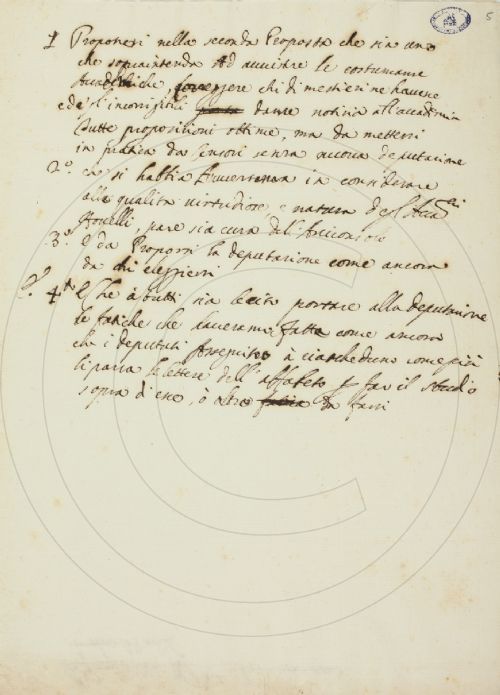 5
1 Proponesi nella seconda Proposta che sia uno
che sopraintenda ad avvertire le costumanze
chi di mestieri ne havesse
e degl'incorrigibili darne notitia all'accademia
Tutte propositioni ottime, ma da mettersi
in pratica da Censori senza nuova deputazione
2º si habbia Avvertenza in considerare
alla qualità virtudiose e natura degl'Accad.ci
Novelli, pare sia cura dell'Arciconsolo
3º E da Proporsi la deputazione come ancora
da chi eleggersi
4º Che à tutti sia lecito portare alla deputazione
le fatiche che haveranno fatte come ancora
che i deputati à ciascheduno come più
li parrà le lettere dell'alfabeto far il studio
sopra d'esse, ò altro da farsi